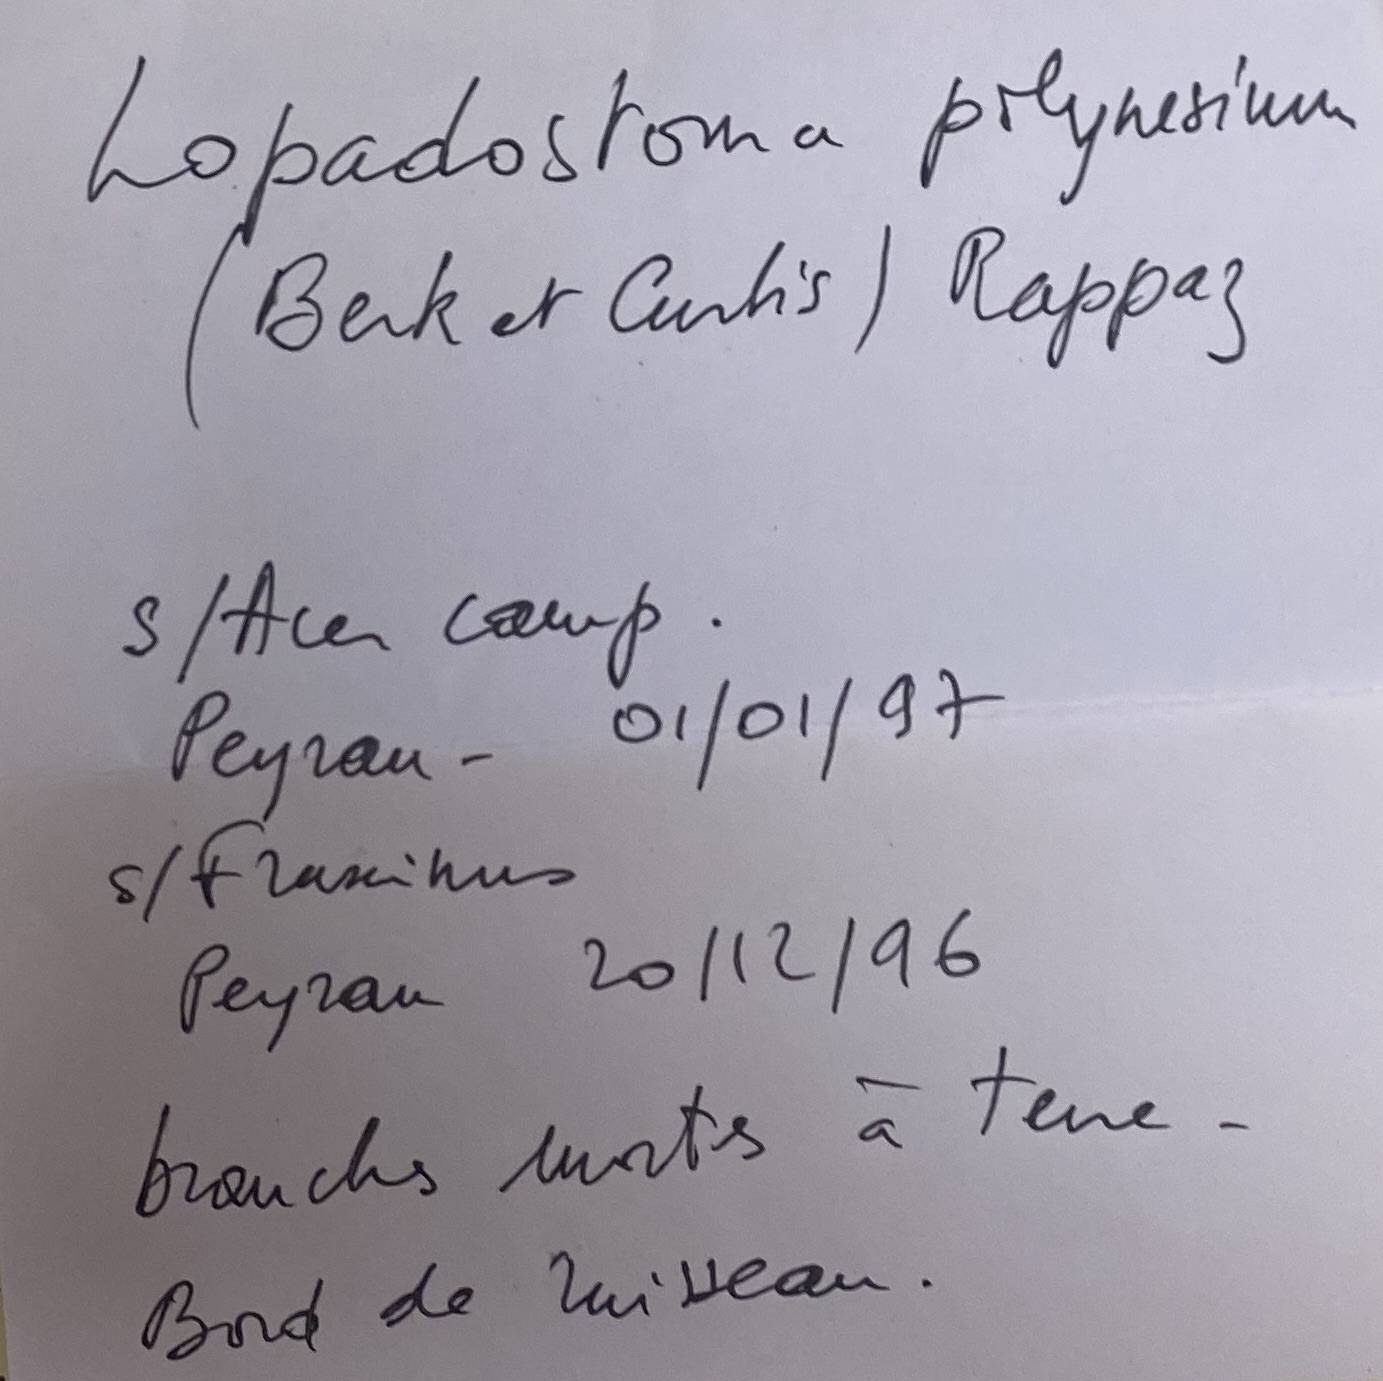 Lopadostoma polynesium
(Berk et Curtis) Rappaz
s/Acer camp.
Peyrau - 01/01/97
s/Fraxinus
Peyrau 20/12/96
branches mortes à terre -
Bord de ruisseau.